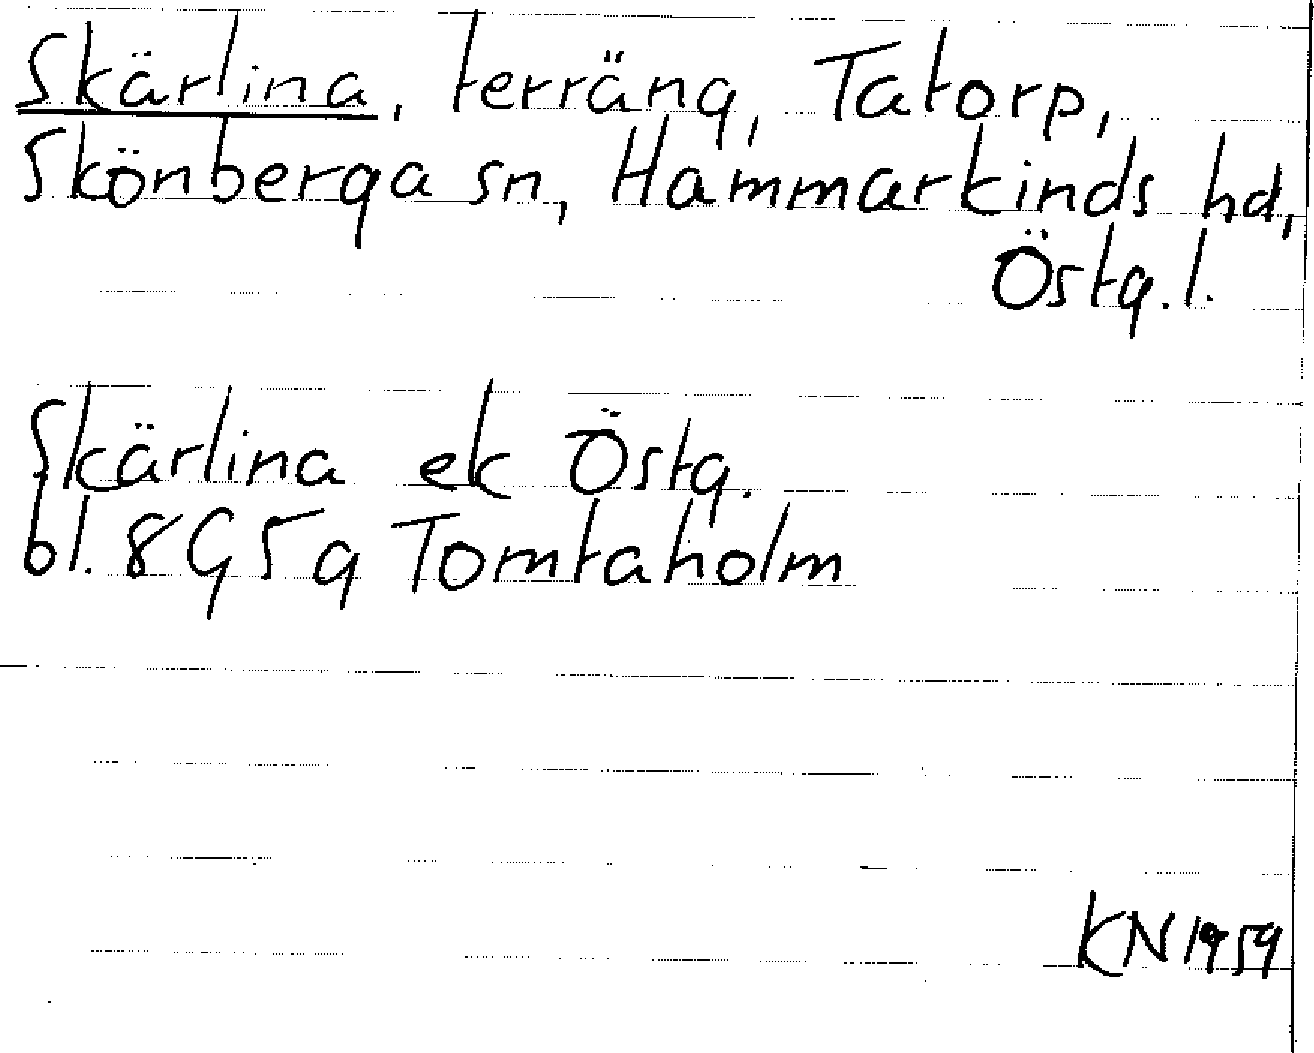 Skärlina, terräng, Tatorp,
Skönberga sn, Hammarkinds hd,
Östg. l.
Skärlina ek Östg.
bl. 8G5g Tomtaholm
KN 1959